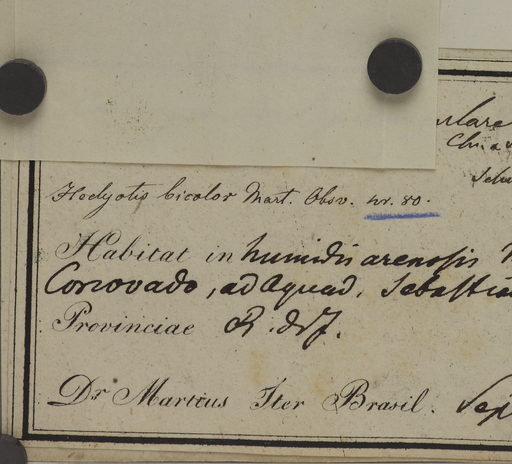 Hedyotis bicolor Mart. Obsv. nr. 80.
Habitat in humidis arenosis
Corcovado, ad Aquad. Sebastia
Provinciae R. d. J.
Dr Martius Iter Brasil. Sep